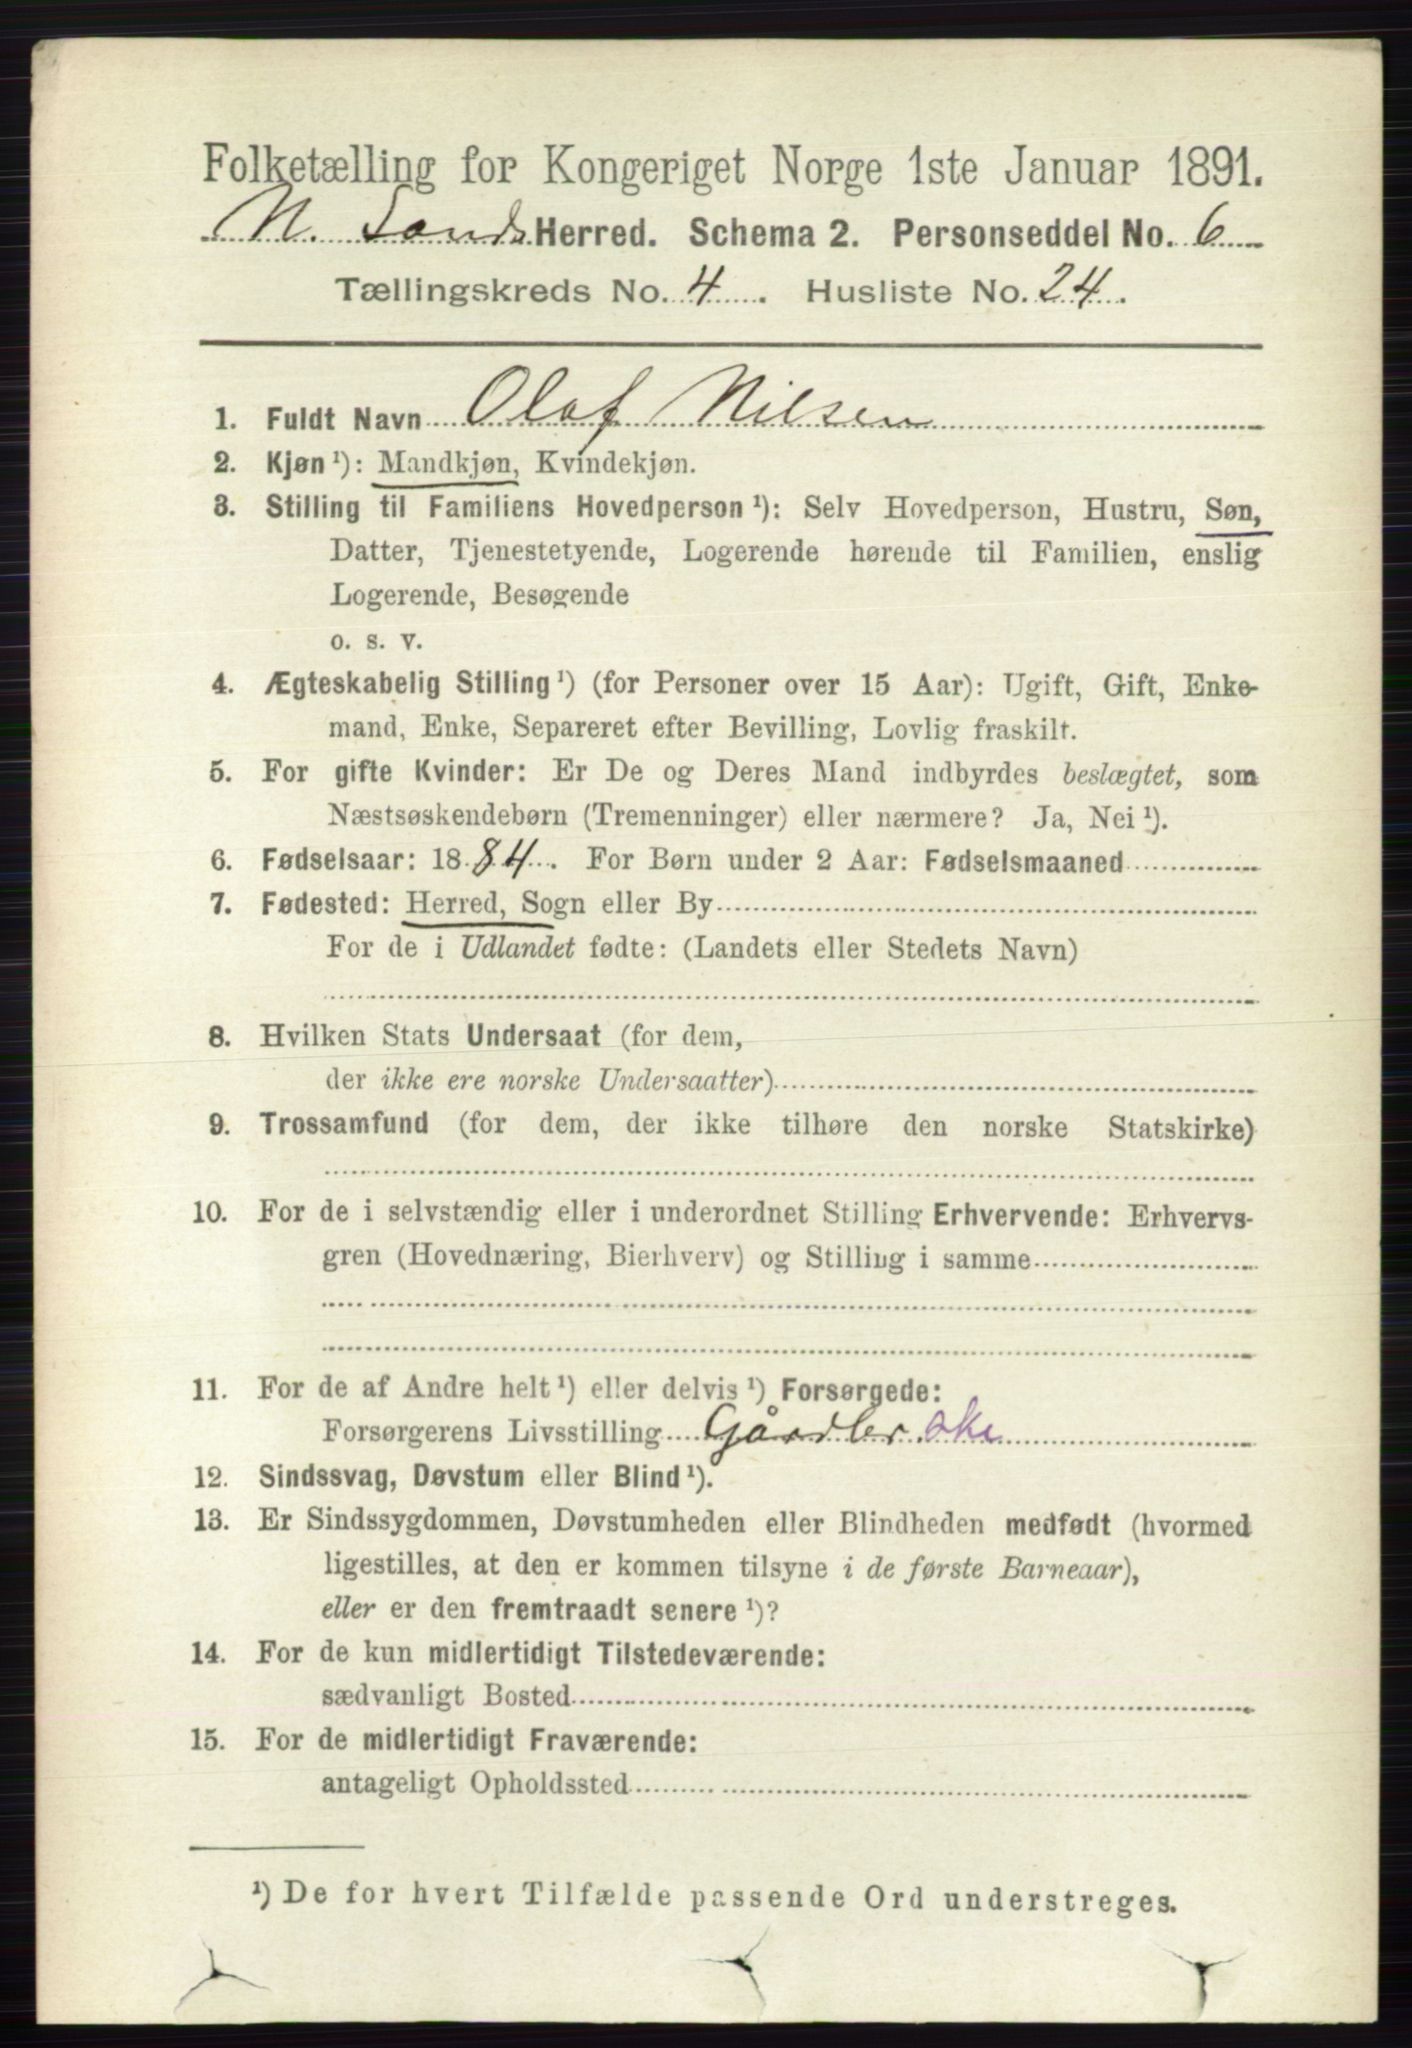 Folketælling for Kongeriget Norge 1ste Januar 1891.
N. Lands Herred. Schema 2. Personseddel No. 6
Tællingskreds No. 4. Husliste No. 24.
1. Fuldt Navn Olaf Nilsen
2. Kjøn ¹): Mandkjøn, Kvindekjøn.
3. Stilling til Familiens Hovedperson ¹): Selv Hovedperson, Hustru, Søn,
Datter, Tjenestetyende, Logerende hørende til Familien, enslig
Logerende, Besøgende
o. s. v.
4. Ægteskabelig Stilling ¹) (for Personer over 15 Aar): Ugift, Gift, Enke-
mand, Enke, Separeret efter Bevilling, Lovlig fraskilt.
5. For gifte Kvinder: Er De og Deres Mand indbyrdes beslægtet, som
Næstsøskendebørn (Tremenninger) eller nærmere? Ja, Nei ¹).
6. Fødselsaar: 1884. For Børn under 2 Aar: Fødselsmaaned
7. Fødested: Herred, Sogn eller By
For de i Udlandet fødte: (Landets eller Stedets Navn)
8. Hvilken Stats Undersaat (for dem,
der ikke ere norske Undersaatter)
9. Trossamfund (for dem, der ikke tilhøre den norske Statskirke)
10. For de i selvstændig eller i underordnet Stilling Erhvervende: Erhvervs-
gren (Hovednæring, Bierhverv) og Stilling i samme
11. For de af Andre helt ¹) eller delvis ¹) Forsørgede:
Forsørgerens Livsstilling Gårdbr.
12. Sindssvag, Døvstum eller Blind ¹).
13. Er Sindssygdommen, Døvstumheden eller Blindheden medfødt (hvormed
ligestilles, at den er kommen tilsyne i de første Barneaar),
eller er den fremtraadt senere ¹)?
14. For de kun midlertidigt Tilstedeværende:
sædvanligt Bosted
15. For de midlertidigt Fraværende:
antageligt Opholdssted
¹) De for hvert Tilfælde passende Ord understreges.